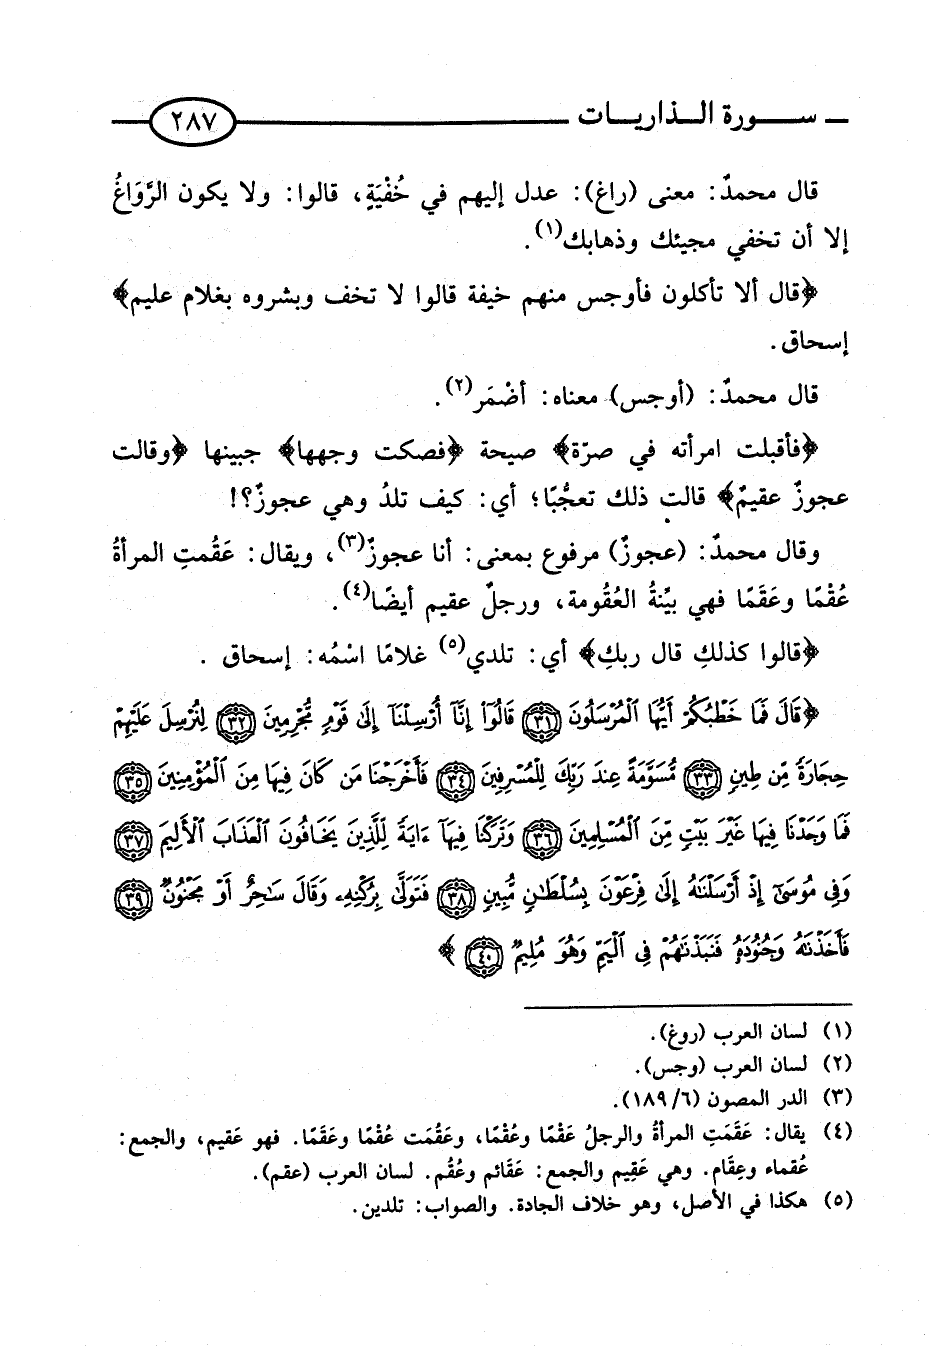 سورة الذاريات ٢٨٧
قال محمدٌ: معنى (راغ): عدل إليهم في خُفْيَةٍ، قالوا: ولا يكون الرَّوَاغُ
إلا أن تخفي مجيئك وذهابك(١).
﴿قال ألا تأكلون فأوجس منهم خيفة قالوا لا تخف وبشروه بغلام عليم﴾
إسحاق.
قال محمدٌ: (أوجس) معناه: أضْمَر(٢).
﴿فأقبلت امرأته في صرّة﴾ صيحة ﴿فصكت وجهها﴾ جبينها ﴿وقالت
عجوزٌ عقيمٌ﴾ قالت ذلك تعجُّبًا؛ أي: كيف تلدُ وهي عجوزٌ؟!
وقال محمدٌ: (عجوزٌ) مرفوع بمعنى: أنا عجوزٌ(٣)، ويقال: عَقُمتِ المرأةُ
عُقْمًا وعَقَمًا فهي بيِّنةُ العُقُومة، ورجلٌ عقيم أيضًا(٤).
﴿قالوا كذلكِ قال ربكِ﴾ أي: تلدي(٥) غلامًا اسْمُه: إسحاق .
﴿قَالَ فَمَا خَطْبُكُمْ أَيُّهَا الْمُرْسَلُونَ ٣١ قَالُوٓا۟ إِنَّآ أُرْسِلْنَآ إِلَىٰ قَوْمٍ مُّجْرِمِينَ ٣٢ لِنُرْسِلَ عَلَيْهِمْ
حِجَارَةً مِّن طِينٍ ٣٣ مُّسَوَّمَةً عِندَ رَبِّكَ لِلْمُسْرِفِينَ ٣٤ فَأَخْرَجْنَا مَن كَانَ فِيهَا مِنَ الْمُؤْمِنِينَ ٣٥
فَمَا وَجَدْنَا فِيهَا غَيْرَ بَيْتٍ مِّنَ الْمُسْلِمِينَ ٣٦ وَتَرَكْنَا فِيهَآ ءَايَةً لِّلَّذِينَ يَخَافُونَ الْعَذَابَ الْأَلِيمَ ٣٧
وَفِى مُوسَىٰٓ إِذْ أَرْسَلْنَـٰهُ إِلَىٰ فِرْعَوْنَ بِسُلْطَـٰنٍ مُّبِينٍ ٣٨ فَتَوَلَّىٰ بِرُكْنِهِۦ وَقَالَ سَـٰحِرٌ أَوْ مَجْنُونٌ ٣٩
فَأَخَذْنَـٰهُ وَجُنُودَهُۥ فَنَبَذْنَـٰهُمْ فِى الْيَمِّ وَهُوَ مُلِيمٌ ٤٠ ﴾
(١) لسان العرب (روغ).
(٢) لسان العرب (وجس).
(٣) الدر المصون (٦/ ١٨٩).
(٤) يقال: عَقَمَتِ المرأةُ والرجلُ عَقْمًا وعُقْمًا، وعَقُمَت عُقْمًا وعَقَمًا. فهو عَقيم، والجمع:
عُقماء وعِقَام. وهي عَقِيم والجمع: عَقَائم وعُقُم. لسان العرب (عقم).
(٥) هكذا في الأصل، وهو خلاف الجادة. والصواب: تلدين.